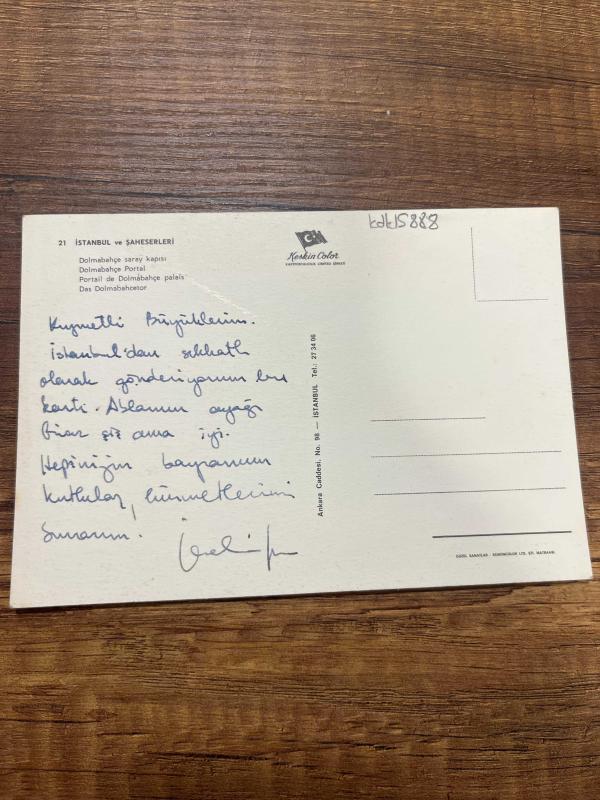 kdk15888
21 İSTANBUL ve ŞAHESERLERİ
Dolmabahçe saray kapısı
Dolmabahçe Portal
Portail de Dolmabahçe palais
Das Dolmabahcetor
Keskin Color
Kıymetli Büyüklerim.
İstanbul'dan sıhhatli
olarak gönderiyorum bu
kartı. Ablamın ayağı
biraz şiş ama iyi.
Hepinizin bayramını
kutlular, hürmetlerimi
sunarım.
Ankara Caddesi, No. 98 — İSTANBUL Tel.: 27 34 06